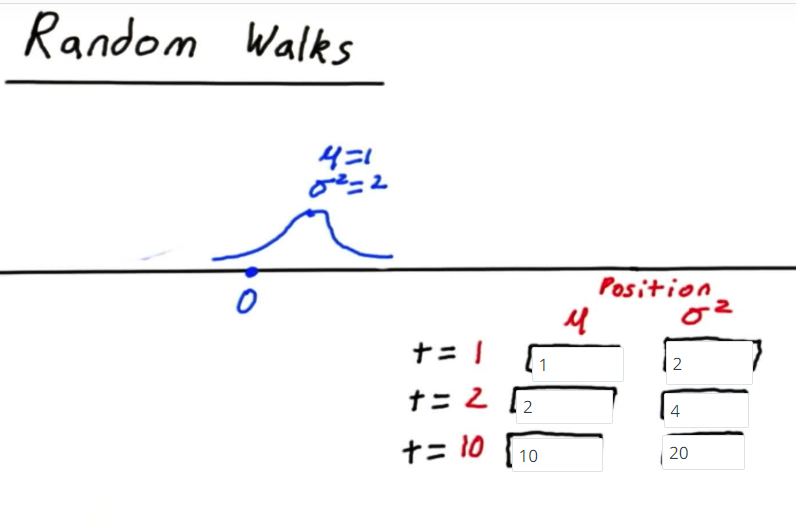 Random Walks
μ=1
σ²=2
0
Position
μ σ²
t=1 1 2
t=2 2 4
t=10 10 20